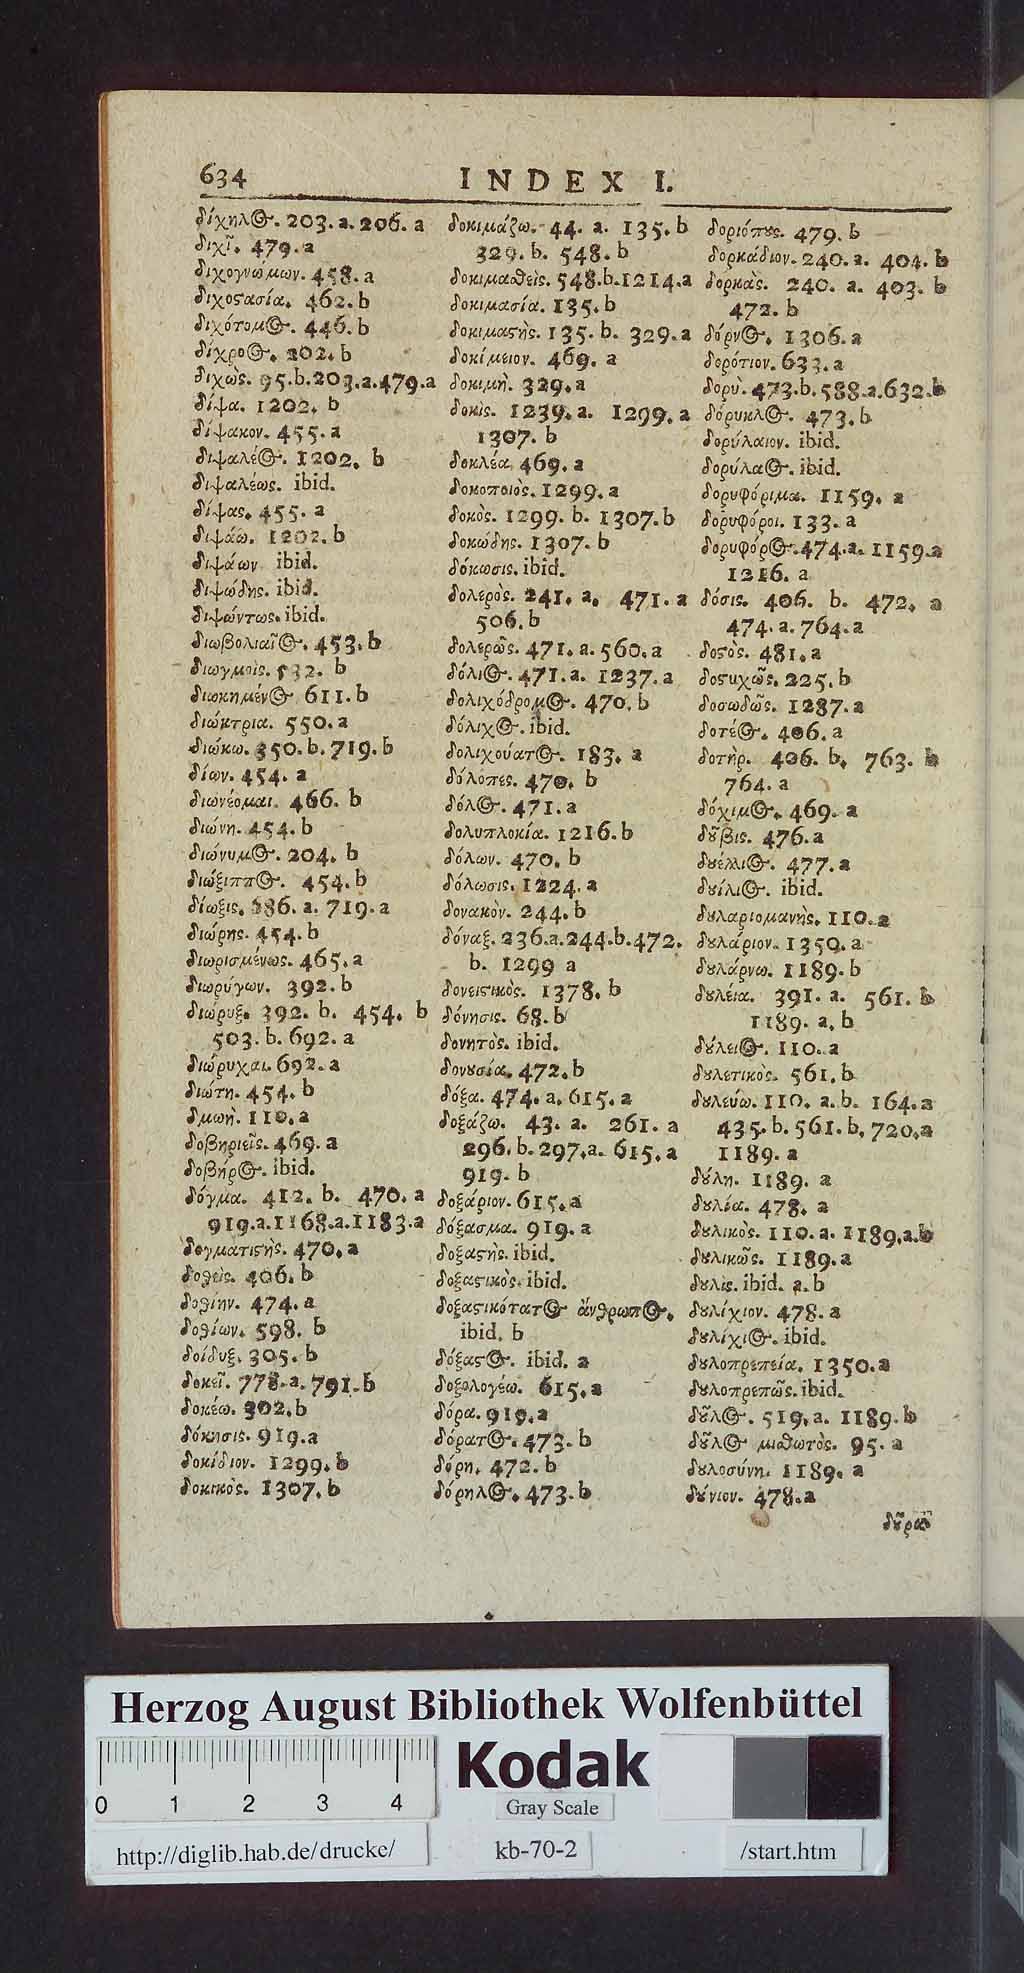 634 INDEX I.
δίχηλος. 203. a. 206. a
διχῆ. 479. a
διχογνώμων. 458. a
διχοϛασία. 462. b
διχότομος. 446. b
δίχροος. 202. b
διχῶς. 95. b. 203. a. 479. a
δίψα. 1202. b
δίψακον. 455. a
διψαλέος. 1202. b
διψαλέως. ibid.
δίψας. 455. a
διψάω. 1202. b
διψάων ibid.
διψώδης. ibid.
διψώντως. ibid.
διωβολιαῖος. 453. b
διωγμοὶς. 532. b
διωκημένος 611. b
διώκτρια. 550. a
διώκω. 350. b. 719. b
δίων. 454. a
διωνέομαι. 466. b
διώνη. 454. b
διώνυμος. 204. b
διώξιππος. 454. b
δίωξις. 686. a. 719. a
διώρης. 454. b
διωρισμένως. 465. a
διωρύγων. 392. b
διώρυξ. 392. b. 454. b
503. b. 692. a
διώρυχαι. 692. a
διώτη. 454. b
δμωὴ. 110. a
δοβηριεῖς. 469. a
δοβήρος. ibid.
δόγμα. 412. b. 470. a
919. a. 1168. a. 1183. a
δογματιϛὴς. 470. a
δοθεὶς. 406. b
δοθιήν. 474. a
δοθίων. 598. b
δοίδυξ. 305. b
δοκεῖ. 778. a. 791. b
δοκέω. 302. b
δόκησις. 919. a
δοκίδιον. 1299. b
δοκικὸς. 1307. b
δοκιμάζω. 44. a. 135. b
329. b. 548. b
δοκιμαθεὶς. 548. b. 1214. a
δοκιμασία. 135. b
δοκιμαϛὴς. 135. b. 329. a
δοκίμειον. 469. a
δοκιμὴ. 329. a
δοκὶς. 1239. a. 1299. a
1307. b
δοκλέα. 469. a
δοκοποιὸς. 1299. a
δοκὸς. 1299. b. 1307. b
δοκώδης. 1307. b
δόκωσις. ibid.
δολερὸς. 241. a. 471. a
506. b
δολερῶς. 471. a. 560. a
δόλιος. 471. a. 1237. a
δολιχόδρομος. 470. b
δόλιχος. ibid.
δολιχούατος. 183. a
δόλοπες. 470. b
δόλος. 471. a
δολυπλοκία. 1216. b
δόλων. 470. b
δόλωσις. 1224. a
δονακὸν. 244. b
δόναξ. 236. a. 244. b. 472.
b. 1299 a
δονειϛικὸς. 1378. b
δόνησις. 68. b
δονητὸς. ibid.
δονυσία. 472. b
δόξα. 474. a. 615. a
δοξάζω. 43. a. 261. a
296. b. 297. a. 615. a
919. b
δοξάριον. 615. a
δόξασμα. 919. a
δοξαϛὴς. ibid.
δοξαϛικὸς. ibid.
δοξαϛικότατος ἄνθρωπος.
ibid. b
δόξαϛος. ibid. a
δοξολογέω. 615. a
δόρα. 919. a
δόρατος. 473. b
δόρη. 472. b
δόρηλος. 473. b
δοριόπȣς. 479. b
δορκάδιον. 240. a. 404. b
δορκὰς. 240. a. 403. b
472. b
δόρνος. 1306. a
δορότιον. 633. a
δορὺ. 473. b. 588. a. 632. b
δόρυκλος. 473. b
δορύλαιον. ibid.
δορύλαος. ibid.
δορυφόριμα. 1159. a
δορυφόροι. 133. a
δορυφόρος. 474. a. 1159. a
1216. a
δόσις. 406. b. 472. a
474. a. 764. a
δοϛὸς. 481. a
δοϛυχῶς. 225. b
δοσωδῶς. 1287. a
δοτέος. 406. a
δοτὴρ. 406. b. 763. b
764. a
δόχιμος. 469. a
δȣ͂βις. 476. a
δȣέλλιος. 477. a
δȣίλιος. ibid.
δȣλαριομανὴς. 110. a
δȣλάριον. 1350. a
δȣλάρνω. 1189. b
δȣλεία. 391. a. 561. b
1189. a, b
δȣ́λειος. 110. a
δȣλετικὸς. 561. b
δȣλεύω. 110. a. b. 164. a
435. b. 561. b. 720. a
1189. a
δȣ́λη. 1189. a
δȣλέα. 478. a
δȣλικὸς. 110. a. 1189. a. b
δȣλικῶς. 1189. a
δȣλὶς. ibid. a. b
δȣλίχιον. 478. a
δȣλίχιος. ibid.
δȣλοπρεπεία. 1350. a
δȣλοπρεπῶς. ibid.
δȣ͂λος. 519. a. 1189. b
δȣ͂λος μισθωτὸς. 95. a
δȣλοσύνη. 1189. a
δȣ́νιον. 478. a
δȣ͂ρα
Herzog August Bibliothek Wolfenbüttel
0 1 2 3 4
Kodak
Gray Scale
http://diglib.hab.de/drucke/
kb-70-2
/start.htm